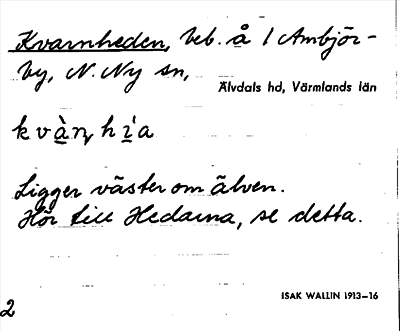 Kvarnheden, beb. å 1 Ambjör-
by, N. Ny sn,
Älvdals hd, Värmlands län
kvàrn̥hi̲a
Ligger väster om älven.
Hör till Hedarna, se detta.
ISAK WALLIN 1913–16
2